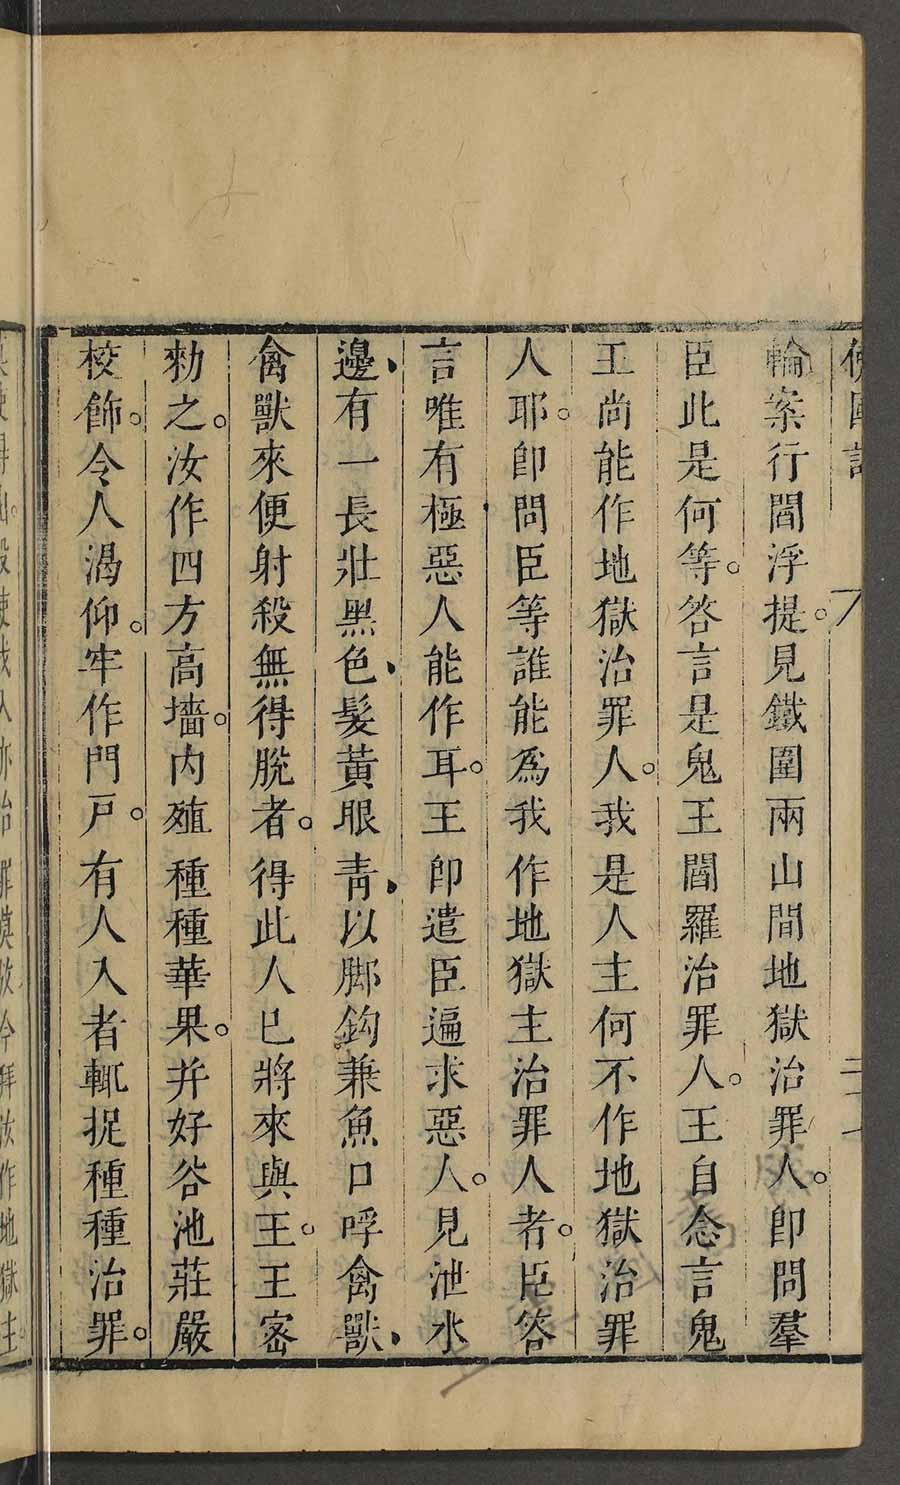 佛國記 二十
輪案行閻浮提。見鐵圍兩山間地獄治罪人。卽問羣
臣此是何等。答言是鬼王閻羅治罪人。王自念言鬼
王尚能作地獄治罪人。我是人主何不作地獄治罪
人耶。卽問臣等誰能爲我作地獄主治罪人者。臣答
言唯有極惡人能作耳。王卽遣臣遍求惡人。見泄水
邊、有一長壯黑色、髮黃眼青、以脚鈎兼魚口呼禽獸、
禽獸來便射殺無得脫者。得此人已將來與王。王密
勑之。汝作四方高墻。內殖種種華果。并好谷池莊嚴
校飾。令人渴仰。牢作門戸。有人入者輒捉種種治罪。